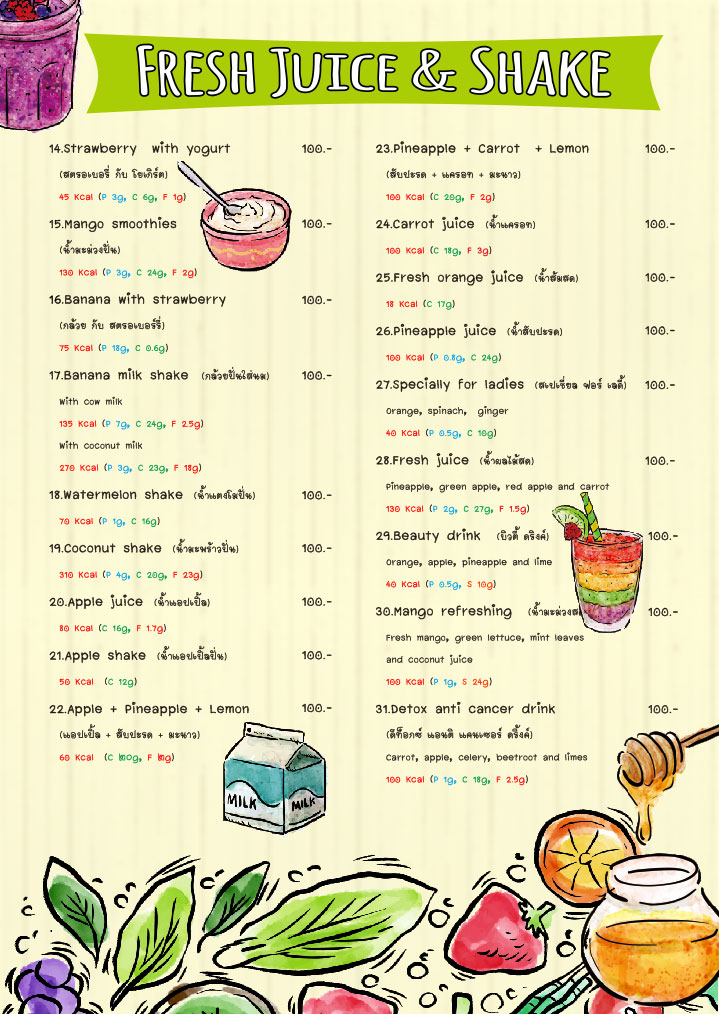 FRESH JUICE & SHAKE
14.Strawberry with yogurt 100.-
(สตรอเบอรี่ กับ โยเกิร์ต)
45 Kcal (P 3g, C 6g, F 1g)
15.Mango smoothies 100.-
(น้ำมะม่วงปั่น)
130 Kcal (P 3g, C 24g, F 2g)
16.Banana with strawberry 100.-
(กล้วย กับ สตรอเบอร์รี่)
75 Kcal (P 18g, C 0.6g)
17.Banana milk shake (กล้วยปั่นใส่นม) 100.-
With cow milk
135 Kcal (P 7g, C 24g, F 2.5g)
With coconut milk
270 Kcal (P 3g, C 23g, F 18g)
18.Watermelon shake (น้ำแตงโมปั่น) 100.-
70 Kcal (P 1g, C 16g)
19.Coconut shake (น้ำมะพร้าวปั่น) 100.-
310 Kcal (P 4g, C 20g, F 23g)
20.Apple juice (น้ำแอปเปิ้ล) 100.-
80 Kcal (C 16g, F 1.7g)
21.Apple shake (น้ำแอปเปิ้ลปั่น) 100.-
50 Kcal (C 12g)
22.Apple + Pineapple + Lemon 100.-
(แอปเปิ้ล + สับปะรด + มะนาว)
60 Kcal
23.Pineapple + Carrot + Lemon 100.-
(สับปะรด + แครอท + มะนาว)
100 Kcal (C 20g, F 2g)
24.Carrot juice (น้ำแครอท) 100.-
100 Kcal (C 18g, F 3g)
25.Fresh orange juice (น้ำส้มสด) 100.-
18 Kcal (C 17g)
26.Pineapple juice (น้ำสับปะรด) 100.-
100 Kcal (P 0.8g, C 24g)
27.Specially for ladies (สเปเชี่ยล ฟอร์ เลดี้) 100.-
Orange, spinach, ginger
40 Kcal (P 0.5g, C 10g)
28.Fresh juice (น้ำผลไม้สด) 100.-
Pineapple, green apple, red apple and carrot
130 Kcal (P 2g, C 27g, F 1.5g)
29.Beauty drink (บิวตี้ ดริงค์) 100.-
Orange, apple, pineapple and lime
40 Kcal (P 0.5g, S 10g)
30.Mango refreshing 100.-
Fresh mango, green lettuce, mint leaves
and coconut juice
100 Kcal (P 1g, S 24g)
31.Detox anti cancer drink 100.-
(ดีท็อกซ์ แอนติ แคนเซอร์ ดริ้งค์)
Carrot, apple, celery, beetroot and limes
100 Kcal (P 1g, C 18g, F 2.5g)
MILK
MILK